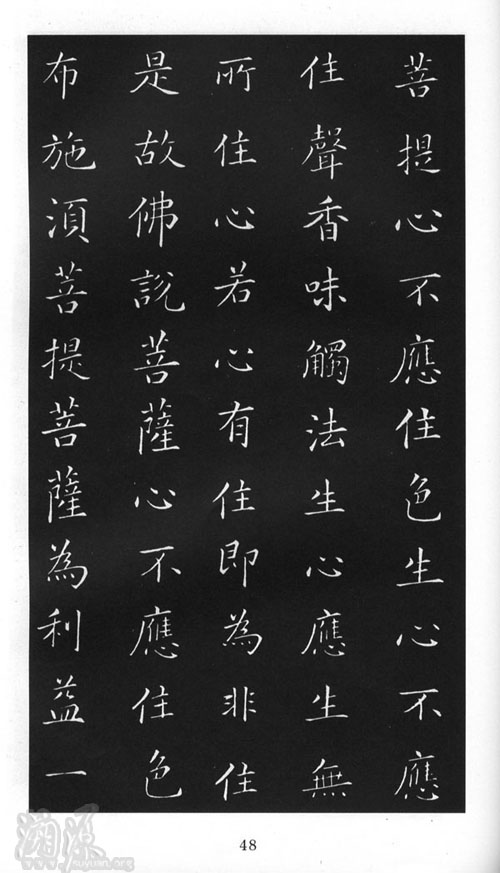 菩提心不應住色生心不應
住聲香味觸法生心應生無
所住心若心有住即為非住
是故佛說菩薩心不應住色
布施須菩提菩薩為利益一
48
溯源
www.suyuan.org